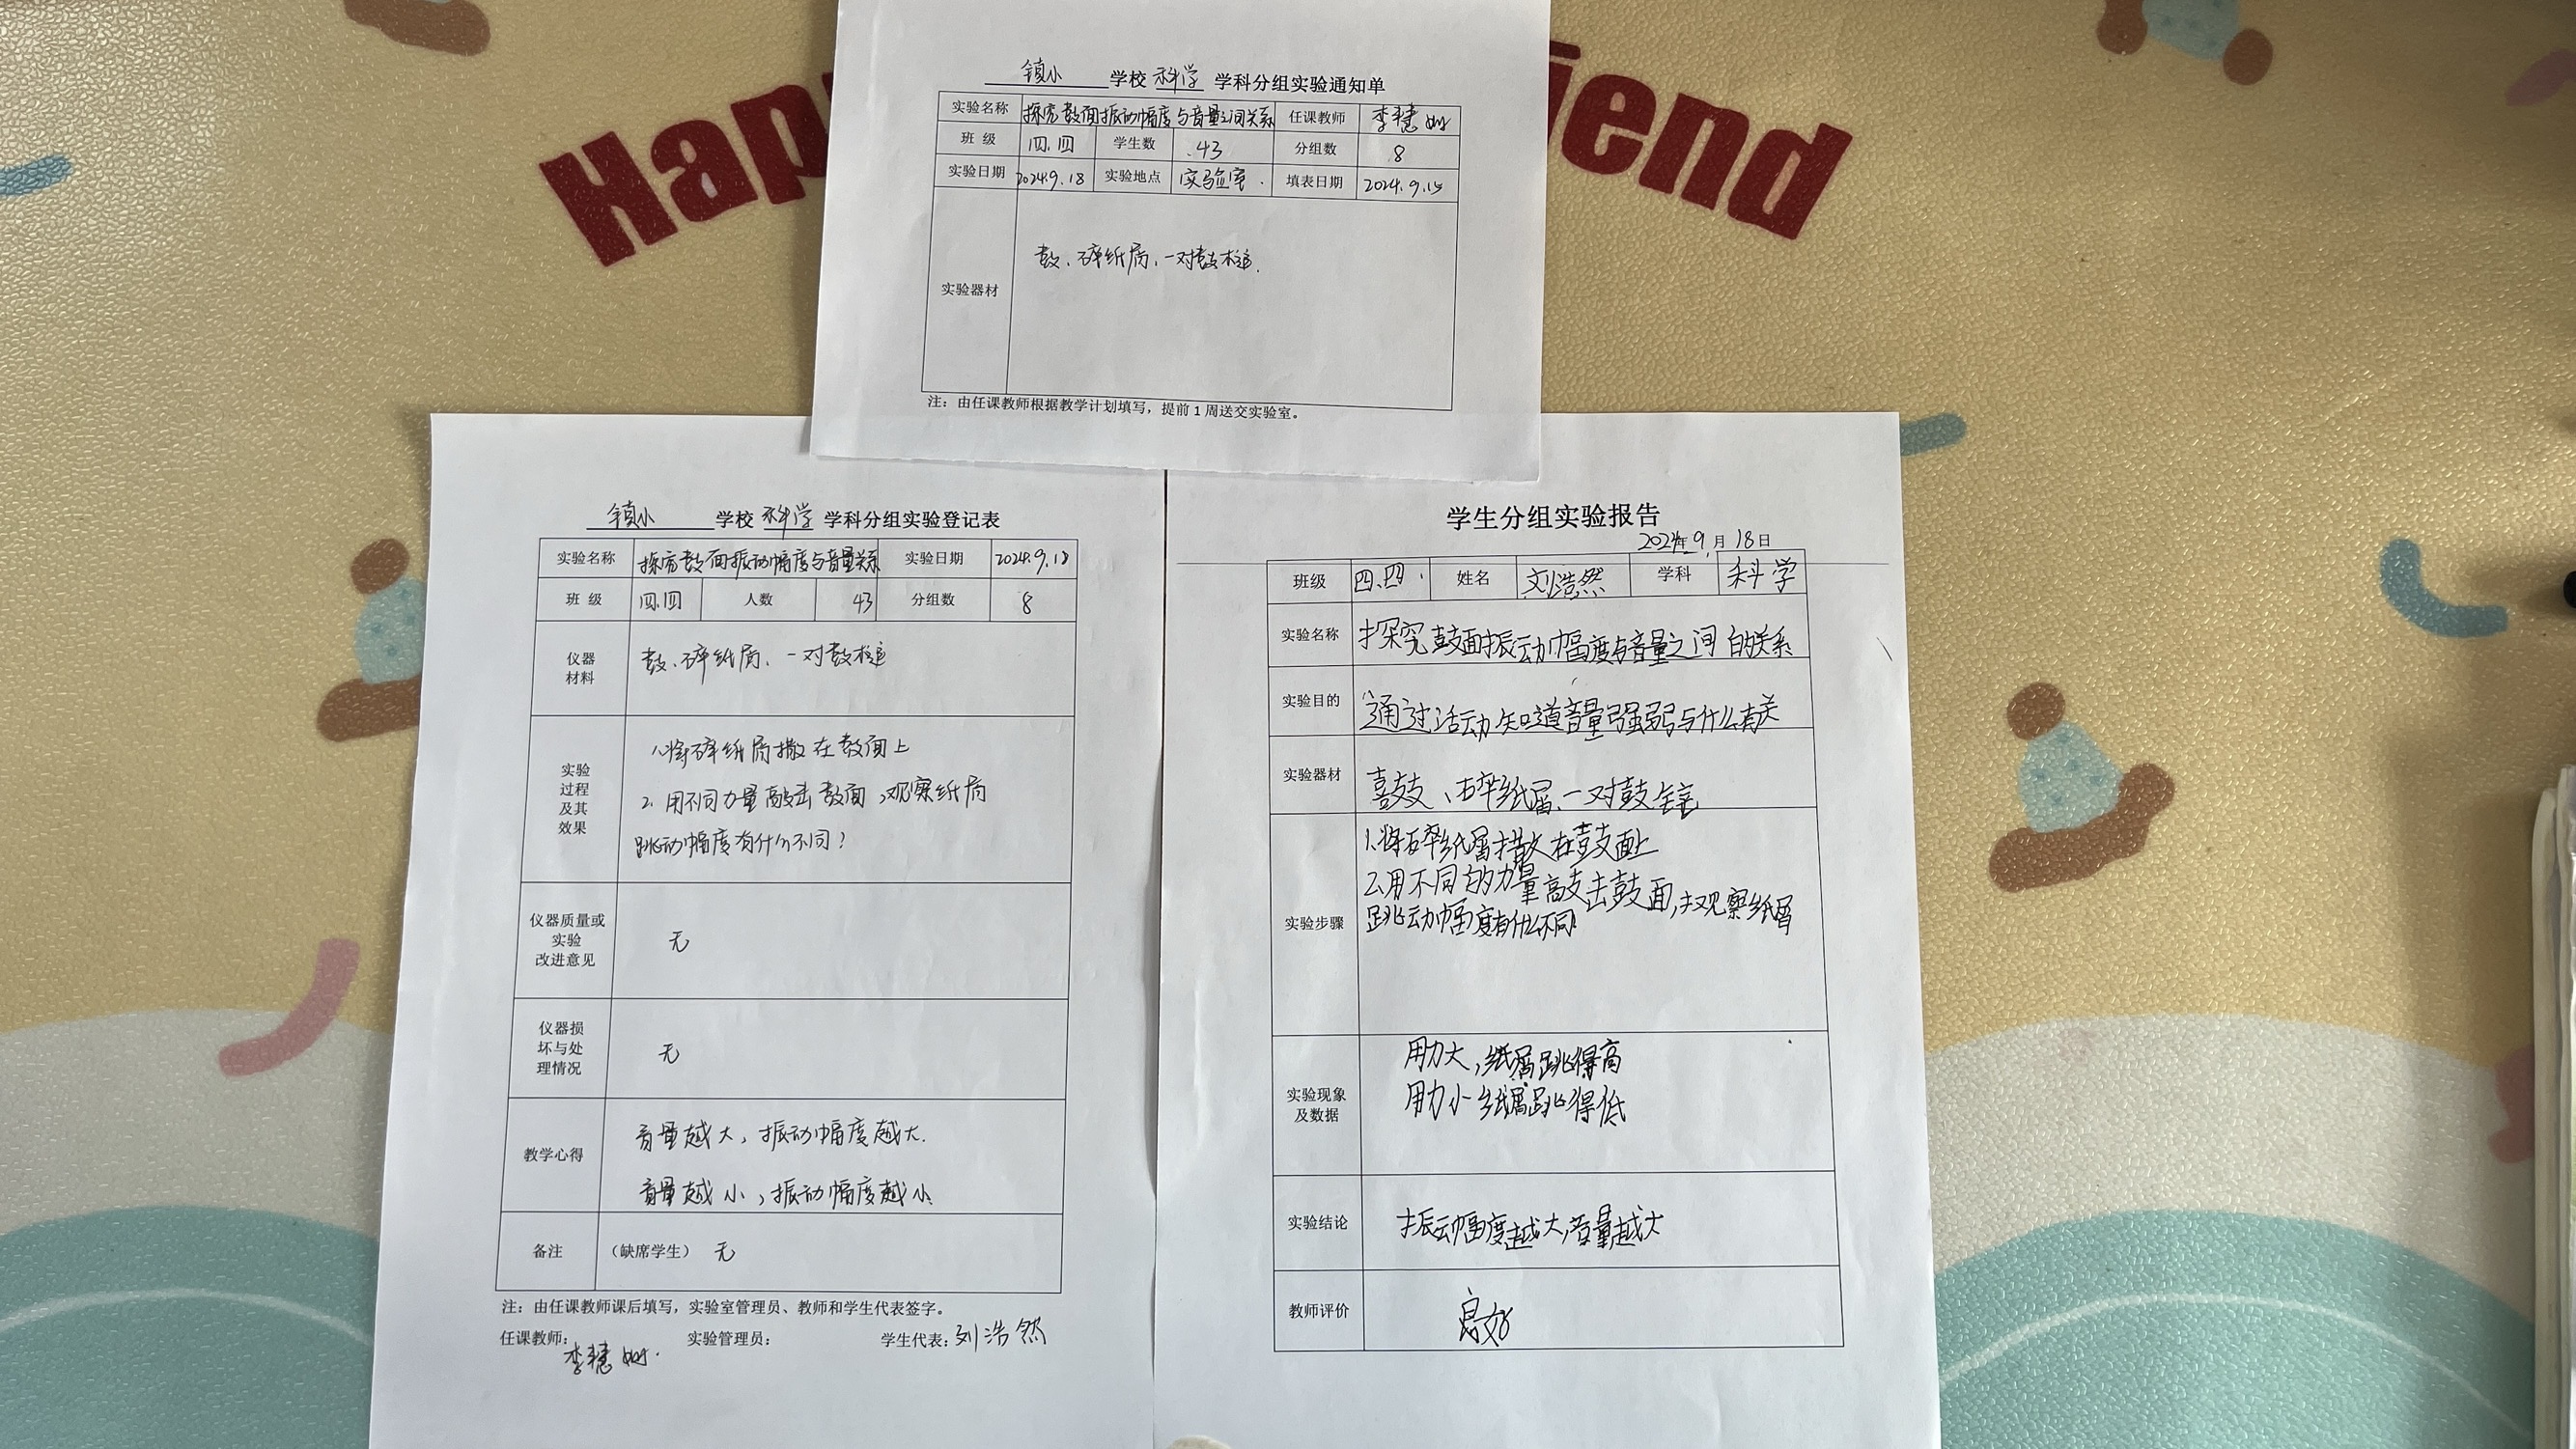 Hap
iend
镇小 学校 科学 学科分组实验通知单
实验名称 探究鼓面振动幅度与音量之间关系 任课教师 李慧
班 级 四.四 学生数 43 分组数 8
实验日期 2024.9.18 实验地点 实验室 填表日期 2024.9.15
实验器材 鼓、碎纸屑、一对鼓槌
注：由任课教师根据教学计划填写，提前 1 周送交实验室。
镇小 学校 科学 学科分组实验登记表
实验名称 探究鼓面振动幅度与音量关系 实验日期 2024.9.18
班 级 四.四 人数 43 分组数 8
仪器
材料
鼓、碎纸屑、一对鼓槌
实验
过程
及其
效果
1、将碎纸屑撒在鼓面上
2. 用不同力量敲击鼓面，观察纸屑
跳动幅度有什么不同？
仪器质量或
实验
改进意见
无
仪器损
坏与处
理情况
无
教学心得
音量越大，振动幅度越大.
音量越小，振动幅度越小
备注 （缺席学生） 无
注：由任课教师课后填写，实验室管理员、教师和学生代表签字。
任课教师： 实验管理员： 学生代表：刘浩然
李慧
学生分组实验报告
2024年9月18日
班级 四.四 姓名 刘浩然 学科 科学
实验名称 探究鼓面振动幅度与音量之间的关系
实验目的 通过活动知道音量强弱与什么有关
实验器材 鼓、碎纸屑、一对鼓
实验步骤
1.将碎纸屑撒在鼓面上
2.用不同的力量敲击鼓面，观察纸屑
跳动幅度有什么不同
实验现象
及数据
用力大，纸屑跳得高
用力小纸屑跳得低
实验结论 振动幅度越大，音量越大
教师评价 良好